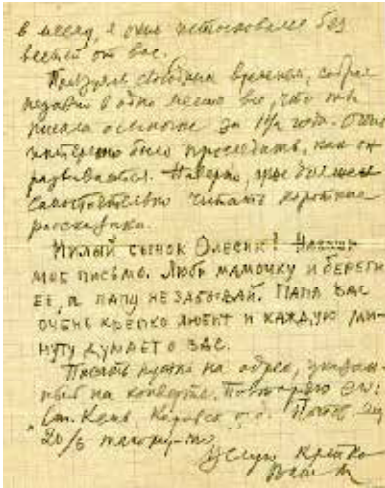 в месяц, я очень истосковался без
вестей от вас.
Пользуясь свободным временем, собрал
недавно в одно место все, что ты
писала о сыночке за 1½ года. Очень
интересно было проследить, как он
развивается. Наверно, уже должен
самостоятельно читать короткие
рассказики.
Милый сынок Олесик!
мое письмо. Люби мамочку и береги
ее, а папу не забывай. Папа вас
очень крепко любит и каждую ми-
нуту думает о вас.
Писать нужно на адрес, указан-
ный на конверте. Повторяю его:
Ст. Кемь, Почт. ящ.
20/6
Целую крепко